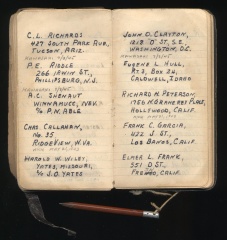 C.L. RICHARDS
427 SOUTH PARK AVE.,
TUCSON, ARIZ.
P.E. RIDDLE
266 IRWIN ST.,
PHILLIPSBURG, N.J.
A.C. SHENAUT
WINNEMUCCA, NEV.
% P.M. ABLE
CHAS. CALLAHAN,
NO. 35
RIDGEVIEW, W.VA.
HAROLD W. WILEY,
YATES, MISSOURI,
% J.D. YATES
JOHN D. CLAYTON,
1218 "O" ST., S.E.,
WASHINGTON, D.C.
EUGENE L. HULL,
RT. 3, BOX 24,
CALDWELL, IDAHO
RICHARD H. PETERSON,
HOLLYWOOD, CALIF.
FRANK C. GARCIA,
622 J ST.,
LOS BANOS, CALIF.
ELMER L. FRANK,
551 D ST.
FRESNO, CALIF.